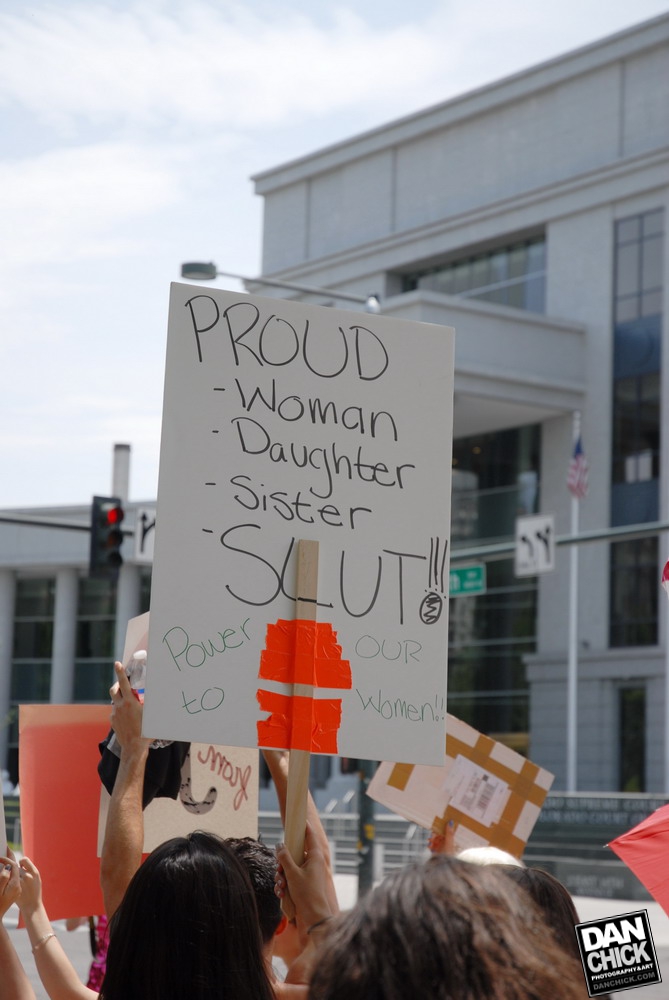 PROUD
- Woman
- Daughter
- Sister
- SLUT!!!
Power OUR
to Women!!
DAN
CHICK
PHOTOGRAPHY&ART
DANCHICK.COM